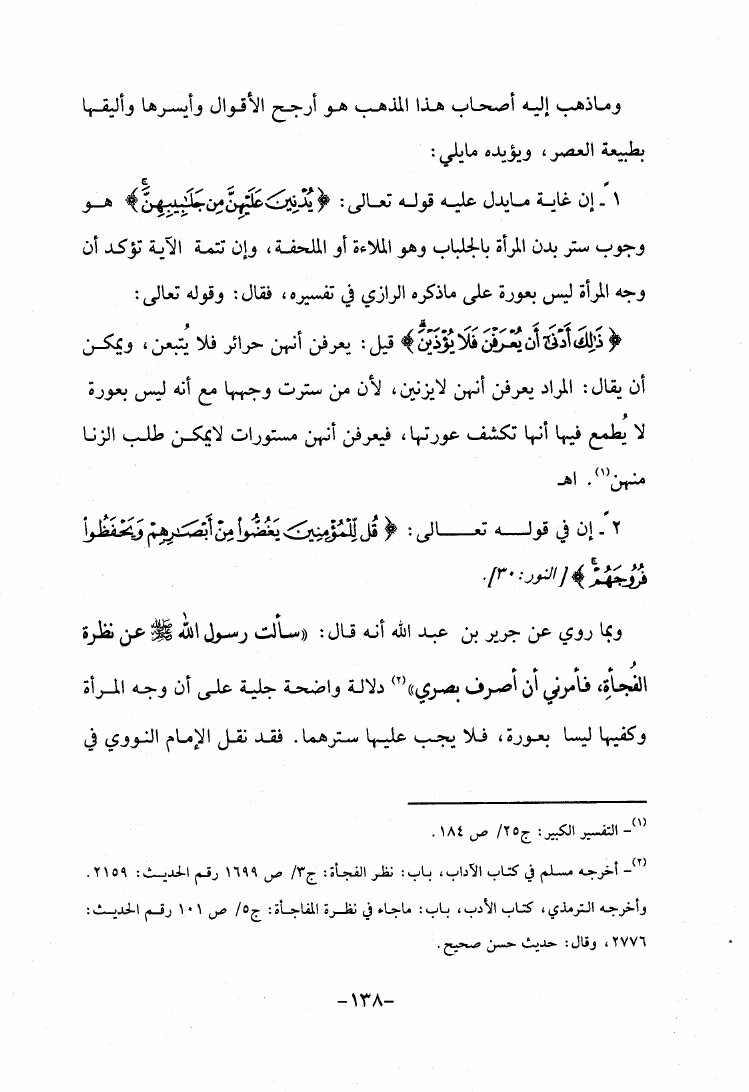 وماذهب إليه أصحاب هذا المذهب هو أرجح الأقوال وأيسرها وأليقها
بطبيعة العصر، ويؤيده مايلي:
١ً ـ إن غاية مايدل عليه قوله تعالى: ﴿يُدْنِينَ عَلَيْهِنَّ مِن جَلَٰبِيبِهِنَّۚ﴾ هو
وجوب ستر بدن المرأة بالجلباب وهو الملاءة أو الملحفة، وإن تتمة الآية تؤكد أن
وجه المرأة ليس بعورة على ماذكره الرازي في تفسيره، فقال: وقوله تعالى:
﴿ذَٰلِكَ أَدْنَىٰٓ أَن يُعْرَفْنَ فَلَا يُؤْذَيْنَۗ﴾ قيل: يعرفن أنهن حرائر فلا يُتبعن، ويمكن
أن يقال: المراد يعرفن أنهن لايزنين، لأن من سترت وجهها مع أنه ليس بعورة
لا يُطمع فيها أنها تكشف عورتها، فيعرفن أنهن مستورات لايمكن طلب الزنا
منهن(١). اهـ
٢ً ـ إن في قوله تعالى: ﴿قُل لِّلْمُؤْمِنِينَ يَغُضُّوا۟ مِنْ أَبْصَٰرِهِمْ وَيَحْفَظُوا۟
فُرُوجَهُمْۚ﴾ [النور: ٣٠].
وبما روي عن جرير بن عبد الله أنه قال: «سألت رسول الله ﷺ عن نظرة
الفُجأةِ، فأمرني أن أصرف بصري»(٢) دلالة واضحة جلية على أن وجه المرأة
وكفيها ليسا بعورة، فلا يجب عليها سترهما. فقد نقل الإمام النووي في
(١)- التفسير الكبير: ج٢٥/ ص ١٨٤.
(٢)- أخرجه مسلم في كتاب الآداب، باب: نظر الفجأة: ج٣/ ص ١٦٩٩ رقم الحديث: ٢١٥٩.
وأخرجه الترمذي، كتاب الأدب، باب: ماجاء في نظرة المفاجأة: ج٥/ ص ١٠١ رقم الحديث:
٢٧٧٦، وقال: حديث حسن صحيح.
-١٣٨-